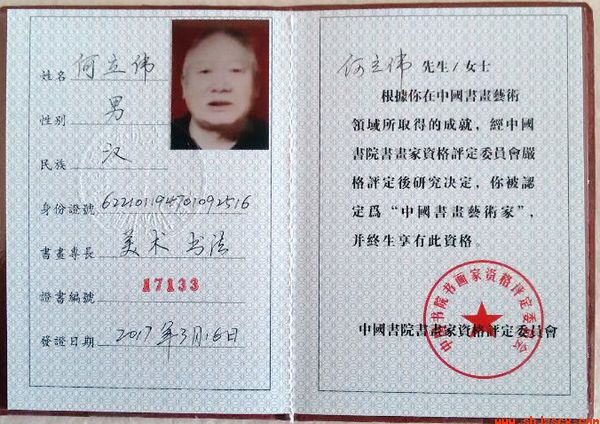 姓名 何立伟
性别 男
民族 汉
身份證號 622101194701092516
書畫專長 美术 书法
證書編號 17133
發證日期 2017年3月16日
何立伟 先生/女士
根據你在中國書畫藝術
領域所取得的成就，經中國
書院書畫家資格評定委員會嚴
格評定後研究决定，你被認
定爲“中國書畫藝術家”，
并終生享有此資格。
中国书院书画家资格评定委员会
中國書院書畫家資格評定委員會